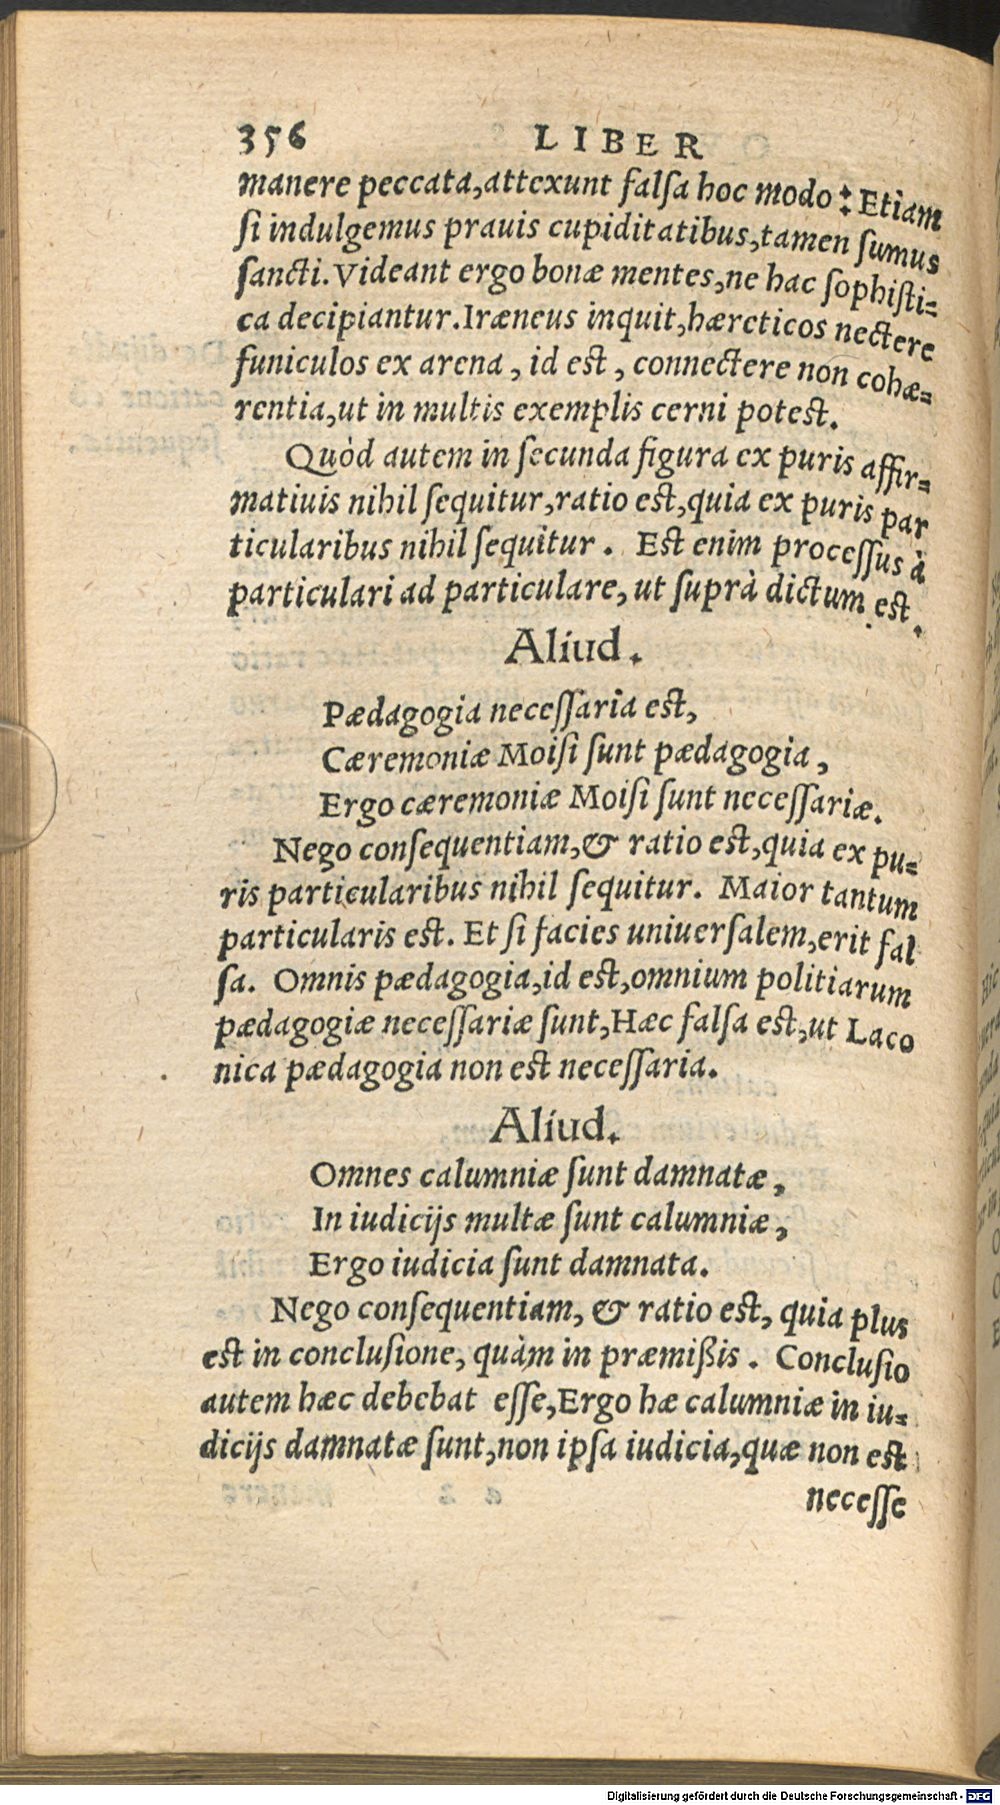 356 LIBER
manere peccata, attexunt falſa hoc modo: Etiam
ſi indulgemus prauis cupiditatibus, tamen ſumus
ſancti. Videant ergo bonæ mentes, ne hac ſophiſti=
ca decipiantur. Iræneus inquit, hæreticos nectere
funiculos ex arena, id eſt, connectere non cohæ=
rentia, ut in multis exemplis cerni poteſt.
Quòd autem in ſecunda figura ex puris affir=
matiuis nihil ſequitur, ratio eſt, quia ex puris par
ticularibus nihil ſequitur. Eſt enim proceſſus à
particulari ad particulare, ut ſuprà dictum eſt.
Aliud.
Pædagogia neceſſaria eſt,
Cæremoniæ Moiſi ſunt pædagogia,
Ergo cæremoniæ Moiſi ſunt neceſſariæ.
Nego conſequentiam, & ratio eſt, quia ex pu=
ris particularibus nihil ſequitur. Maior tantum
particularis eſt. Et ſi facies uniuerſalem, erit fal
ſa. Omnis pædagogia, id eſt, omnium politiarum
pædagogiæ neceſſariæ ſunt, Hæc falſa eſt, ut Laco
nica pædagogia non eſt neceſſaria.
Aliud.
Omnes calumniæ ſunt damnatæ,
In iudicijs multæ ſunt calumniæ,
Ergo iudicia ſunt damnata.
Nego conſequentiam, & ratio eſt, quia plus
eſt in concluſione, quàm in præmißis. Concluſio
autem hæc debebat eſſe, Ergo hæ calumniæ in iu=
dicijs damnatæ ſunt, non ipſa iudicia, quæ non eſt
neceſſe
Digitalisierung gefördert durch die Deutsche Forschungsgemeinschaft - DFG